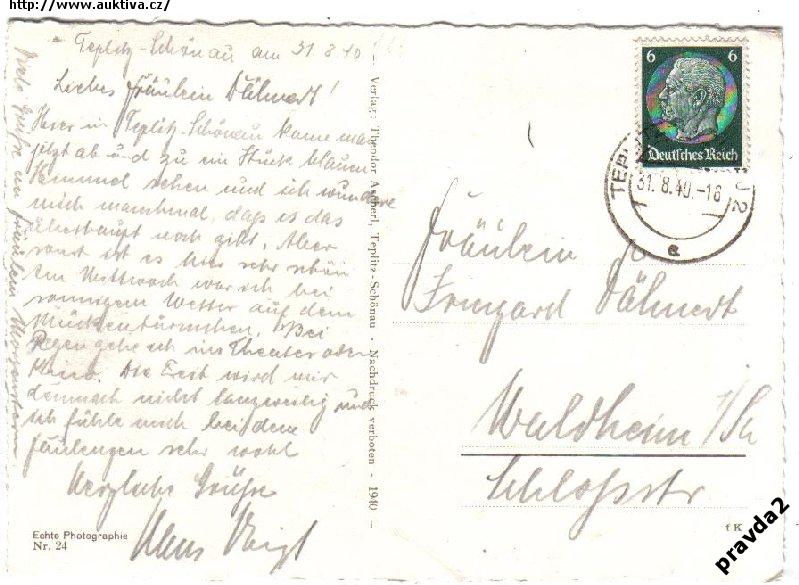 http://www.auktiva.cz/
Teplitz-Schönau am 31 8 40
Liebes Fräulein Dähnert!
Hier in Teplitz-Schönau kann man
jetzt ab und zu ein Stück blauen
Himmel sehen und ich wundere
mich manchmal, dass es das
überhaupt noch gibt. Aber
sonst ist es hier sehr schön
Am Mittwoch war ich bei
sonnigem Wetter auf dem
Mückentürmchen. Bei
Regen gehe ich ins Theater oder
Kino. Die Zeit wird mir
demnach nicht langweilig und
ich fühle mich bei dem
faulenzen sehr wohl
Herzliche Grüße
Voigt
Grüße an Fräulein
Echte Photographie
Nr. 24
Verlag: Theodor Ascherl, Teplitz-Schönau - Nachdruck verboten - 1940
6 6
Deutsches Reich
31.8.40.-16
e
Fräulein
Irmgard Dähnert
Waldheim i/Sa
Schloßstr
fK
pravda2